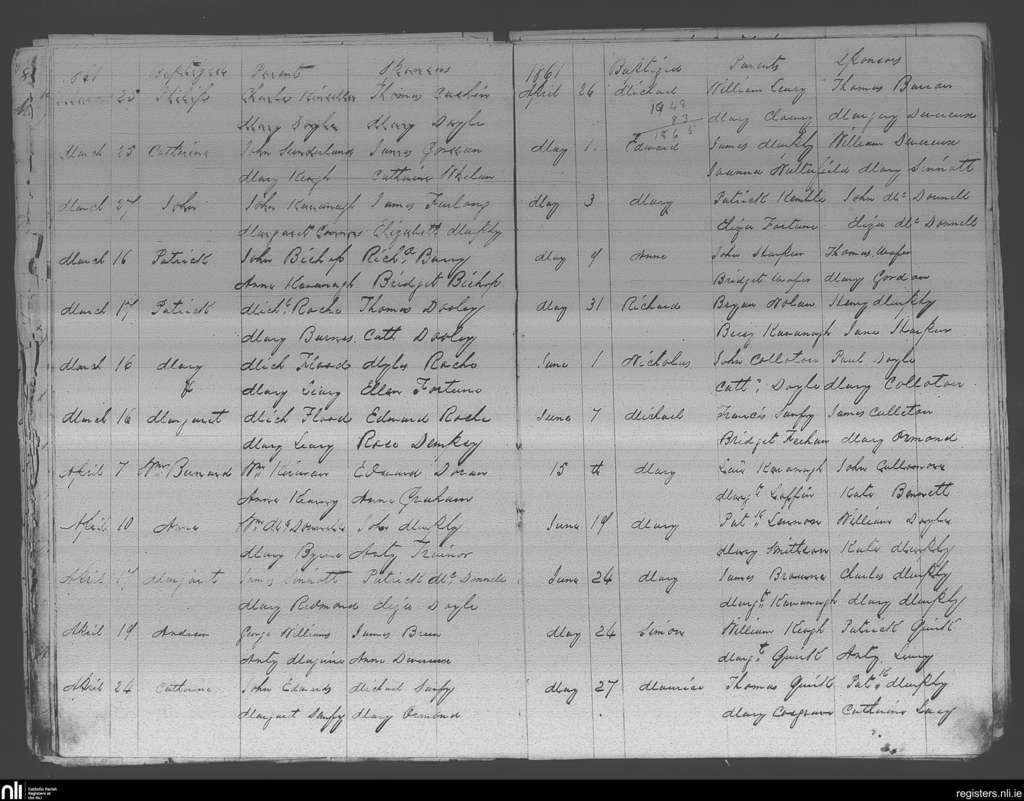 1861 Baptized Parents Sponsors
25 Philip Charles Kinsella Thomas Cushin
Mary Doyle Mary Doyle
March 25 Catherine John Sunderland James Gordan
Mary Keogh Catherine Whelan
March 27 John John Kavanagh James Furlong
Margaret Connor Elizabeth Murphy
March 16 Patrick John Bishop Richd Barry
Anne Kavanagh Bridget Bishop
March 17 Patrick Michl Roche Thomas Dooley
Mary Barnes Cath Dooley
March 16 Mary Mich Flood Myles Roche
& Mary Leary Ellen Fortune
March 16 Margaret Mich Flood Edward Roche
Mary Leary Rose Dempsey
April 7 Wm Bernard Wm Kirwan Edward Doran
Anne Kearny Anne Graham
April 10 Anne Wm McDonnell John Murphy
Mary Byrne Anty Trainor
April 17 Margaret James Sinnott Patrick McDonnell
Mary Redmond Eliza Doyle
April 19 Andrew George Williams James Breen
Anty Maguire Anne Devereux
April 24 Catherine John Edwards Michael Sunfy
Margaret Sunfy Mary Ormond
1861 Baptized Parents Sponsors
April 26 Michael William Leary Thomas Barron
Mary Clancy Margary Devereux
1948
83
1865
May 1. Edward James Murphy William Devereux
Joanna Butterfield Mary Sinnott
May 3 Mary Patrick Kemple John McDonnell
Eliza Fortune Eliza McDonnell
May 9 Anne John Harper Thomas Wafer
Bridget Wafer Mary Gordan
May 31 Richard Bryan Nolan Henry Murphy
Bessy Kavanagh Jane Harper
June 1 Nicholas John Colloton Paul Doyle
Cathn Doyle Mary Colloton
June 7 Michael Francis Sunfy James Culleton
Bridget Feehan Mary Ormond
15 th Mary Kavanagh John
Margt Laffin Kate Bennett
June 19 Mary Patk Connor William Doyle
Mary Smithson Kate Murphy
June 24 Mary James Browne Charles Murphy
Margt Kavanagh Mary Murphy
May 24 Simon William Keogh Patrick Quirk
Margt Quirk Anty Leary
May 27 Maurice Thomas Quirk Patk Murphy
Mary Cosgrave Catherine Leary
nli Catholic Parish
Registers at
the NLI
registers.nli.ie